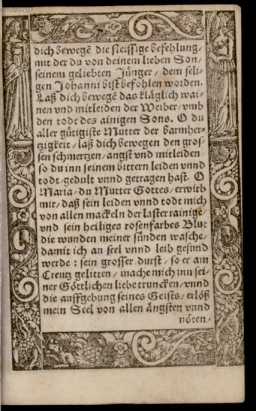 dich bewegē die fleissige befehlung/
mit der du von deinem lieben Son/
seinem geliebten Jünger / dem seli-
gen Johanni bist befohlen worden.
Laß dich bewegē das kläglich wai-
nen vnd mitleiden der Weiber / vmb
den todt des ainigen Sons. O du
aller gütigiste Mutter der barmher-
tzigkeit / laß dich bewegen den gros-
sen schmertzen / angst vnd mitleiden
so du inn seinem bittern leiden vnnd
todt gedult vnnd getragen hast. O
Maria / du Mutter Gottes / erwirb
mir / daß sein leiden vnnd todt mich
von allen mackeln der laster rainige
vnd sein heiliges rosenfarbes Blut
die wunden meiner sünden wasche/
damit ich an seel vnnd leib gesund
werde : sein grosser durst / so er am
Creutz gelitten / mache mich inn sei-
ner Göttlichen liebe truncken / vnnd
die auffgebung seines Geists / erlöß
mein Seel von allen ängsten vnnd
nöten/